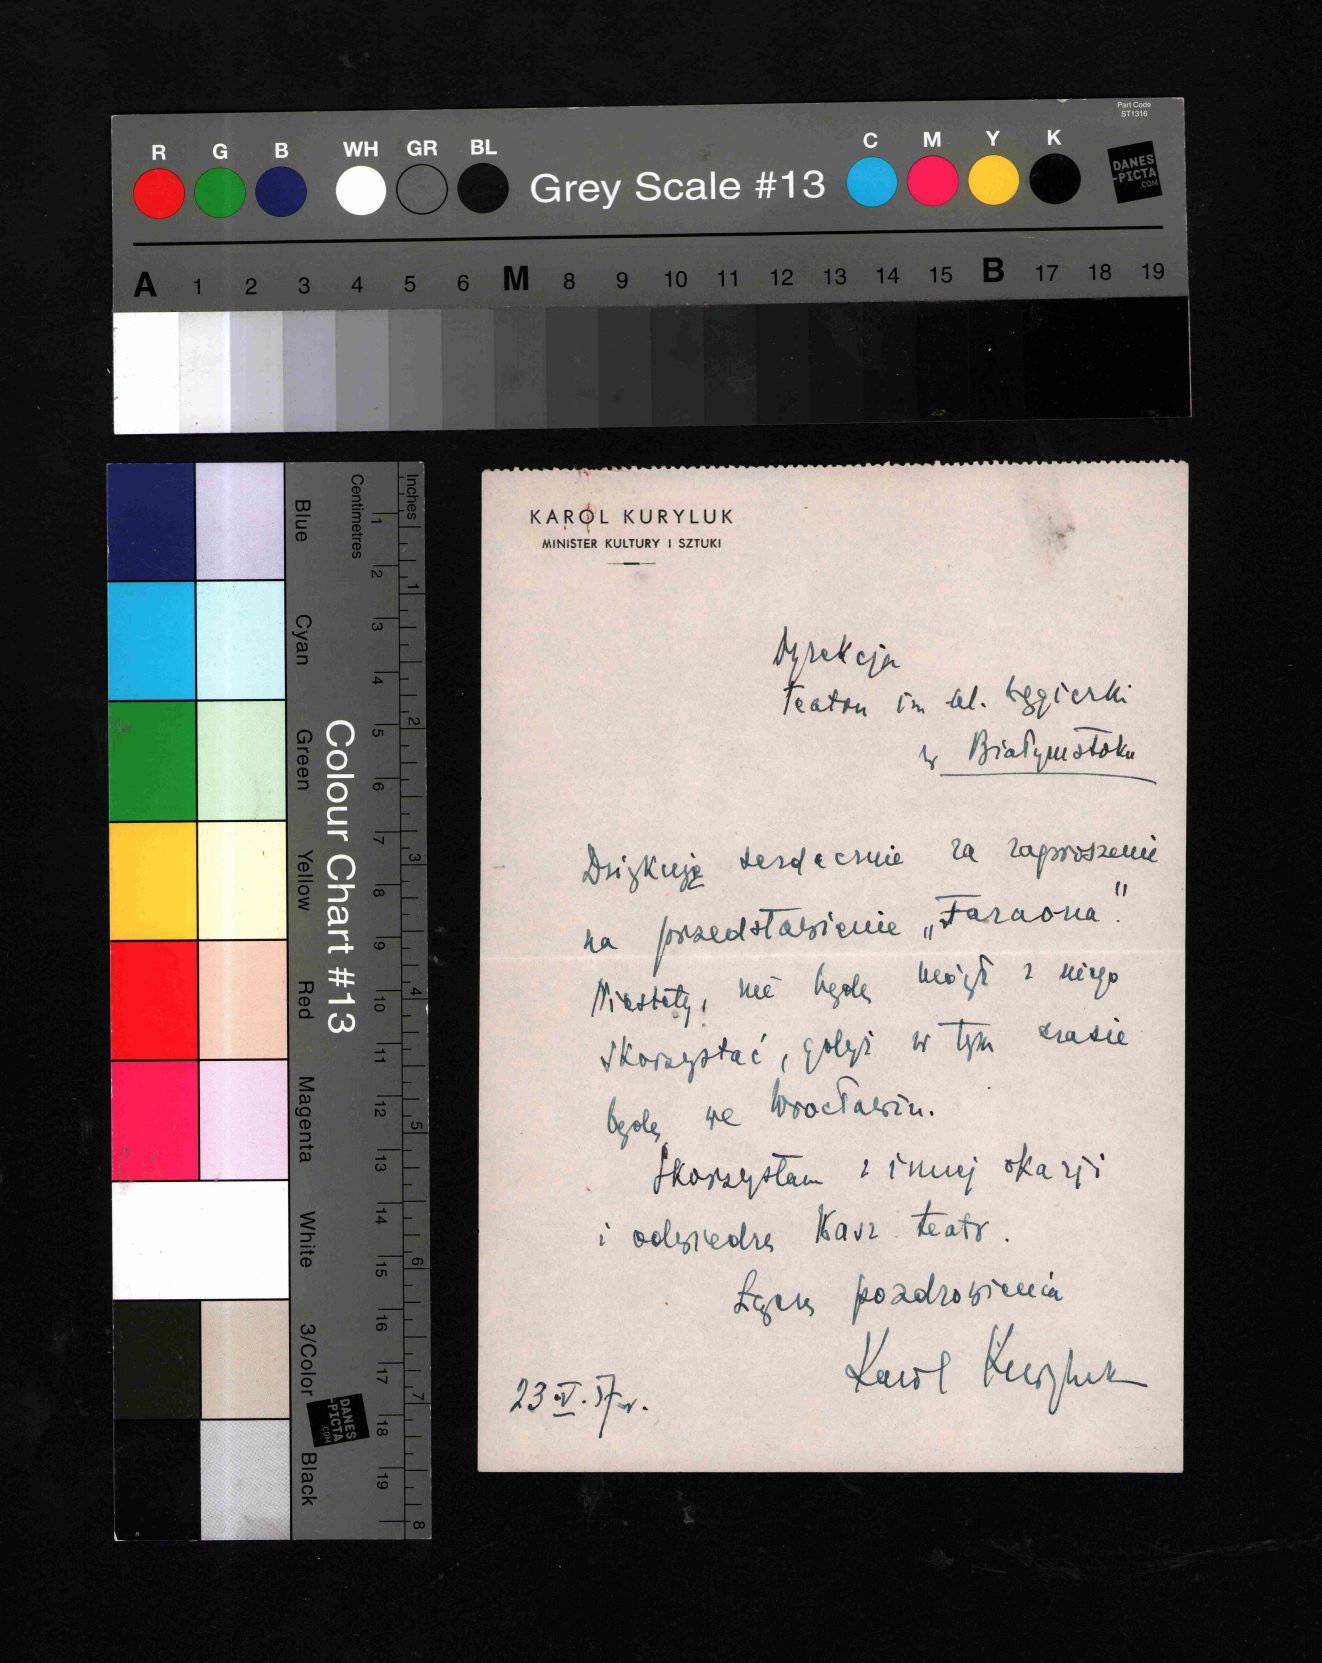 Part Code
ST1316
R G B WH GR BL Grey Scale #13 C M Y K
DANES
-PICTA
.COM
A 1 2 3 4 5 6 M 8 9 10 11 12 13 14 15 B 17 18 19
Colour Chart #13
Blue
Cyan
Green
Yellow
Red
Magenta
White
3/Color
Black
Centimetres
1 2 3 4 5 6 7 8 9 10 11 12 13 14 15 16 17 18 19
Inches
1 2 3 4 5 6 7 8
DANES
-PICTA
.COM
KAROL KURYLUK
MINISTER KULTURY I SZTUKI
Dyrekcja
Teatru im Al. Węgierki
w Białymstoku
Dziękuję serdecznie za zaproszenie
na przedstawienie „Faraona”.
Niestety, nie będę mógł z niego
skorzystać, gdyż w tym czasie
będę we Wrocławiu.
Skorzystam z innej okazji
i odwiedzę Wasz teatr.
Łączę pozdrowienia
Karol Kuryluk
23.V.57 r.